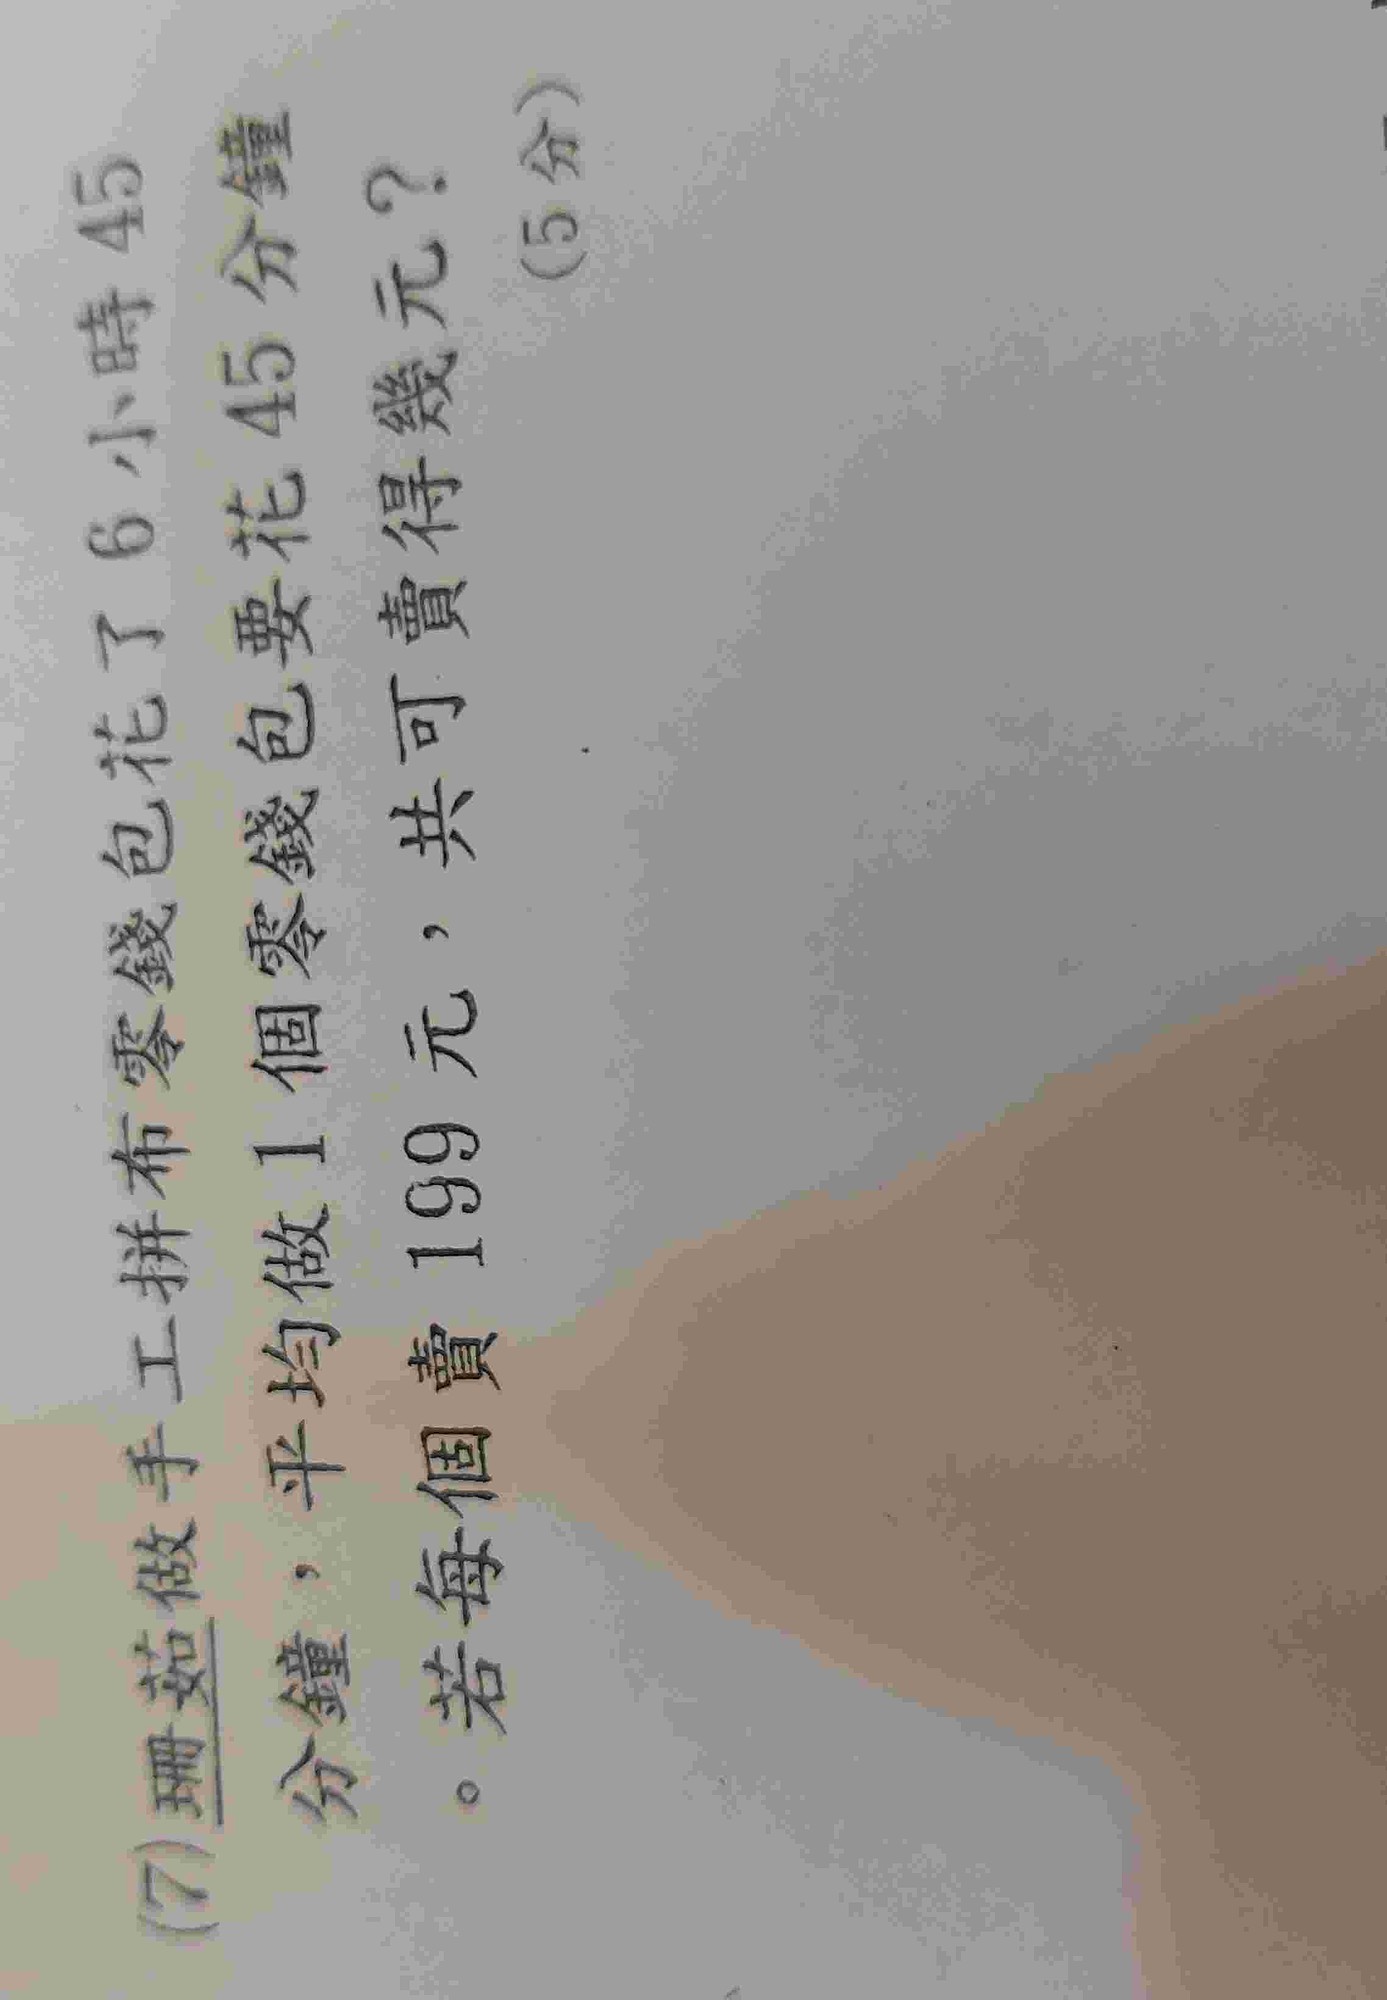 (7)珊茹做手工拼布零錢包花了 6 小時 45
分鐘，平均做 1 個零錢包要花 45 分鐘
。若每個賣 199 元，共可賣得幾元？
(5 分)